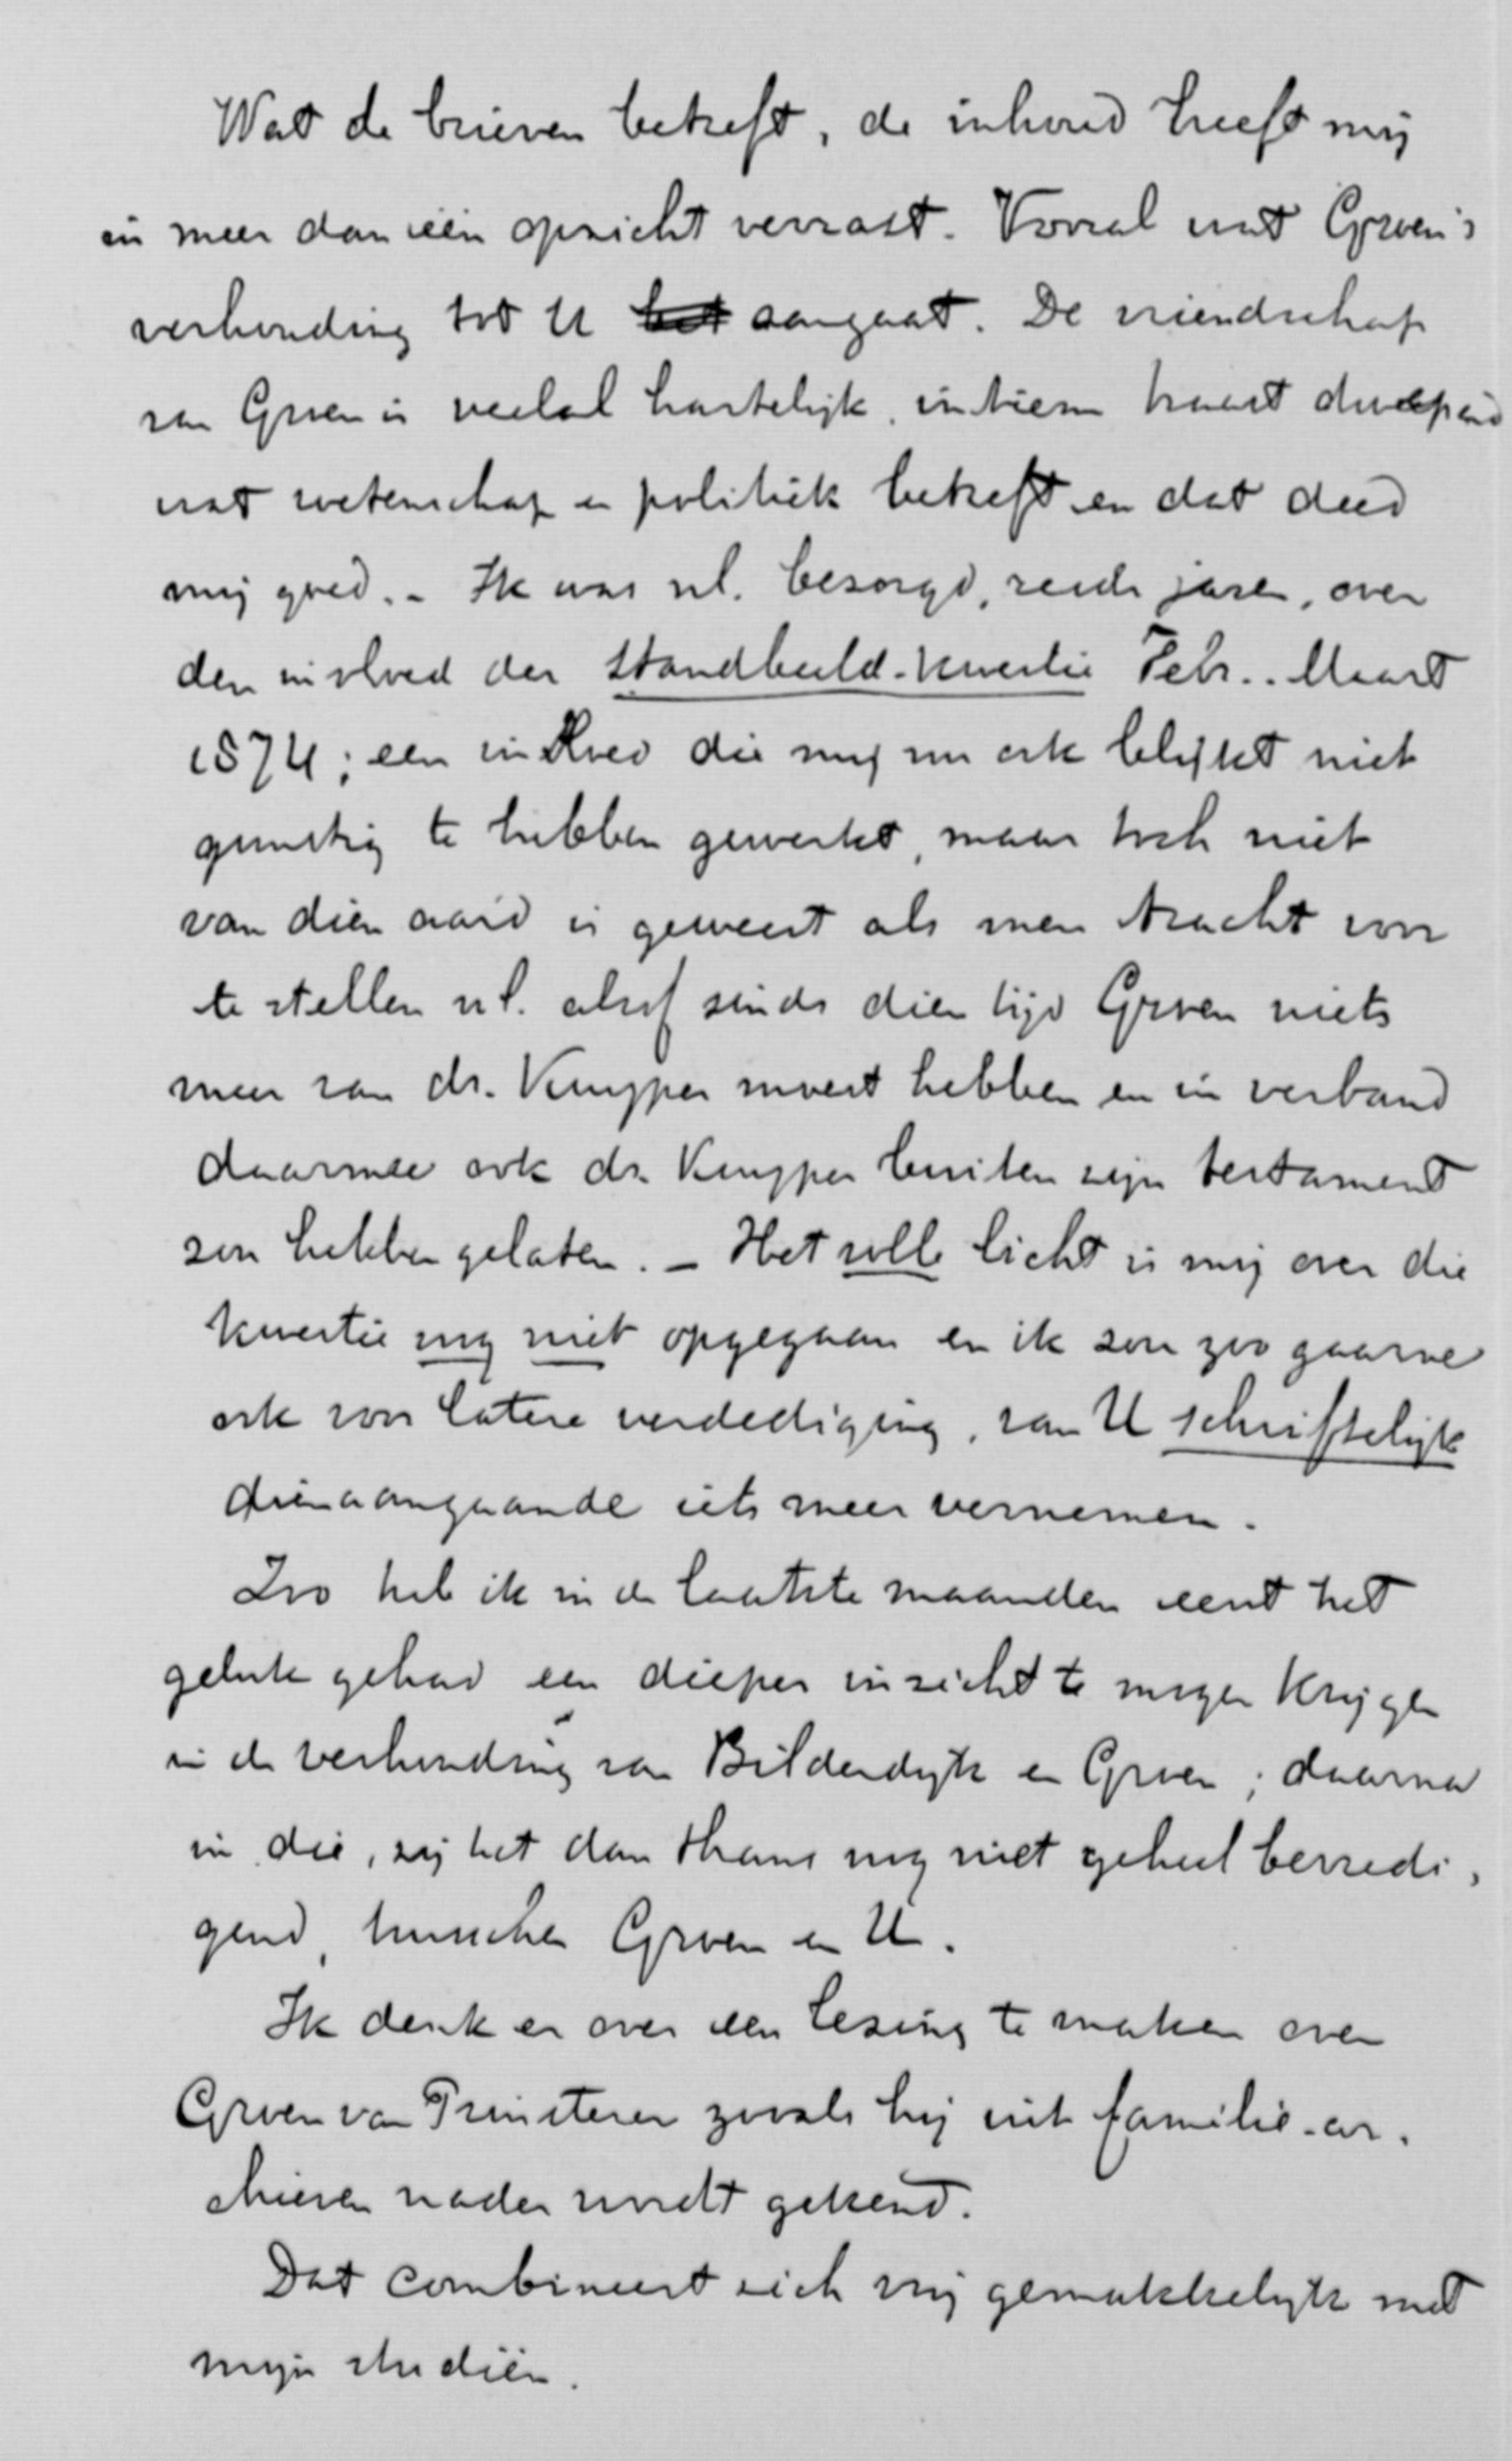 Wat de brieven betreft, de inhoud heeft mij
in meer dan één opzicht verrast. Vooral wat Groen's
verhouding tot U het aangaat. De vriendschap
van Groen is veelal hartelijk, intiem haast dweepend
wat wetenschap en politiek betreft en dat deed
mij goed. - Ik was nl. bezorgd, reeds jaren, over
den invloed der standbeeld-kwestie Febr.. Maart
1874; een invloed die mij nu ook blijkt niet
gunstig te hebben gewerkt, maar toch niet
van dien aard is geweest als men tracht voor
te stellen nl. alsof sinds dien tijd Groen niets
meer van dr. Kuyper moest hebben en in verband
daarmee ook dr. Kuyper buiten zijn testament
zou hebben gelaten. - Het volle licht is mij over die
kwestie nog niet opgegaan en ik zou zoo gaarne
ook voor latere verdediging, van U schriftelijk
dienaangaande iets meer vernemen.
Zoo heb ik in de laatste maanden eerst het
geluk gehad een dieper inzicht te mogen krijgen
in de verhouding van Bilderdijk en Groen; daarna
in die, zij het dan thans nog niet geheel bevredi-
gend, tusschen Groen en U.
Ik denk er over een lezing te maken over
Groen van Prinsterer zooals hij uit familie-ar-
chieven nader wordt gekend.
Dat combineert zich vrij gemakkelijk met
mijn studiën.